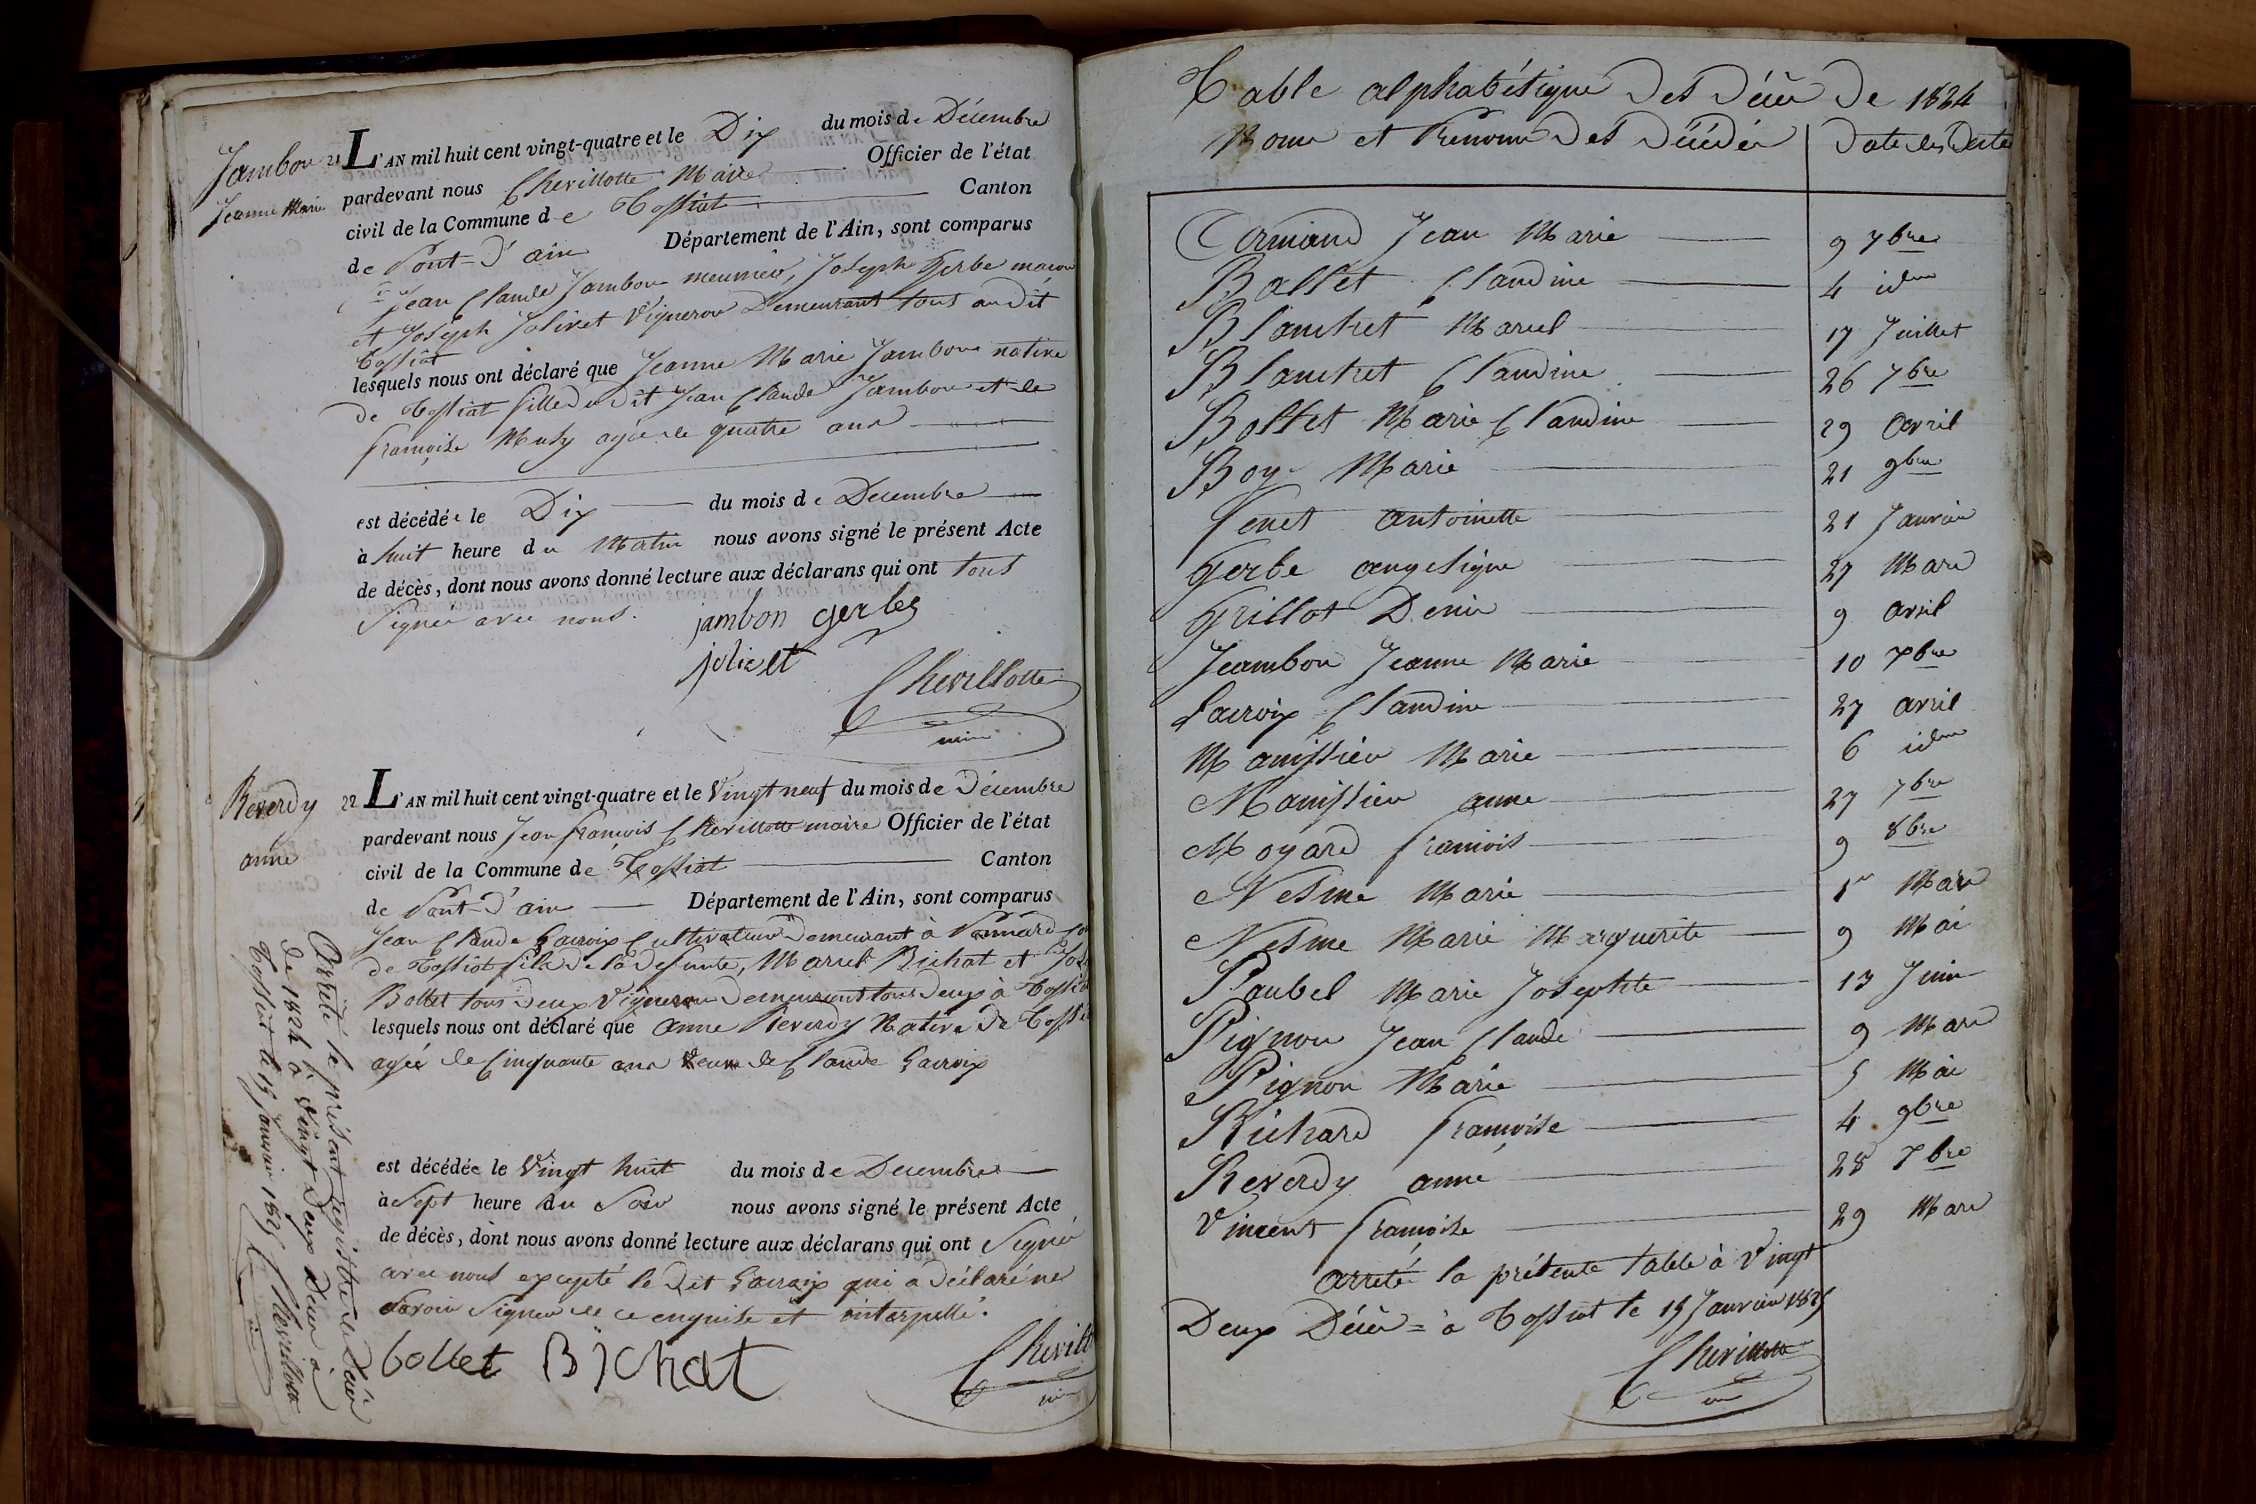 Jambon 21
Jeanne Marie
L'AN mil huit cent vingt-quatre et le Dix du mois de Décembre
pardevant nous Chevillotte Maire Officier de l'état
civil de la Commune de Tossiat Canton
de Pont-d'ain Département de l'Ain, sont comparus
Jean Claude Jambon meunier, Joseph Gerbe maçon
et Joseph Jolivet Vigneron Demeurant tous audit
Tossiat
lesquels nous ont déclaré que Jeanne Marie Jambon native
de Tossiat fille dudit Jean Claude Jambon et de
françoise Musy agée de quatre ans
est décédée le Dix du mois de Decembre
à huit heure du Matin nous avons signé le présent Acte
de décès, dont nous avons donné lecture aux déclarans qui ont tous
Signés avec nous.
jambon gerbe
jolivet
Chevillotte
maire
Reverdy 22
anne
L'AN mil huit cent vingt-quatre et le Vingt neuf du mois de Décembre
pardevant nous Jean françois Chevillotte maire Officier de l'état
civil de la Commune de Tossiat Canton
de Pont-d'ain Département de l'Ain, sont comparus
Jean Claude Lacroix Cultivateur Demeurant à
de Tossiat fils de la defunte, Marcel Bichat et
Bollet tous Deux Vignerons Demeurant tous Deux à
lesquels nous ont déclaré que anne Reverdy Native de
agée de Cinquante ans Veuve de Claude Lacroix
est décédée le Vingt huit du mois de Decembre
à Sept heure du Soir nous avons signé le présent Acte
de décès, dont nous avons donné lecture aux déclarans qui ont Signé
avec nous excepté le Dit Lacroix qui a Déclaré ne
Savoir Signer de ce enquise et interpellé.
bollet Bichat
Arrêté le présent registre de Décès
de 1824 à Vingt Deux Décès à
Tossiat le 15 Janvier 1825 Chevillotte
Table alphabétique Des Décès De 1824
Noms et Prénoms Des Décédés Date des Décès
Armand Jean Marie 9 7bre
Ballet Claudine 4 idem
Blanchet Marcel 17 Juillet
Blanchet Claudine 26 7bre
Bollet Marie Claudine 29 Avril
Boy Marie 21 9bre
fenet antoinette 21 Janvier
Gerbe angelique 27 Mars
Grillot Denis 9 avril
Jeambon Jeanne Marie 10 Xbre
Lacroix Claudine 27 avril
Manissieu Marie 6 idem
Manissieu anne 27 7bre
Moyard francois 9 8bre
Nesme Marie 1er Mars
Nesme Marie Marguerite 9 Mai
Paubel Marie Josephte 13 Juin
Pignon Jean Claude 9 Mars
Pignon Marie 5 Mai
Richard françoise 4 9bre
Reverdy anne 28 Xbre
Vincent françoise 29 Mars
arrêté la présente table à Vingt
Deux Décès = à Tossiat le 15 Janvier 1825
Chevillotte